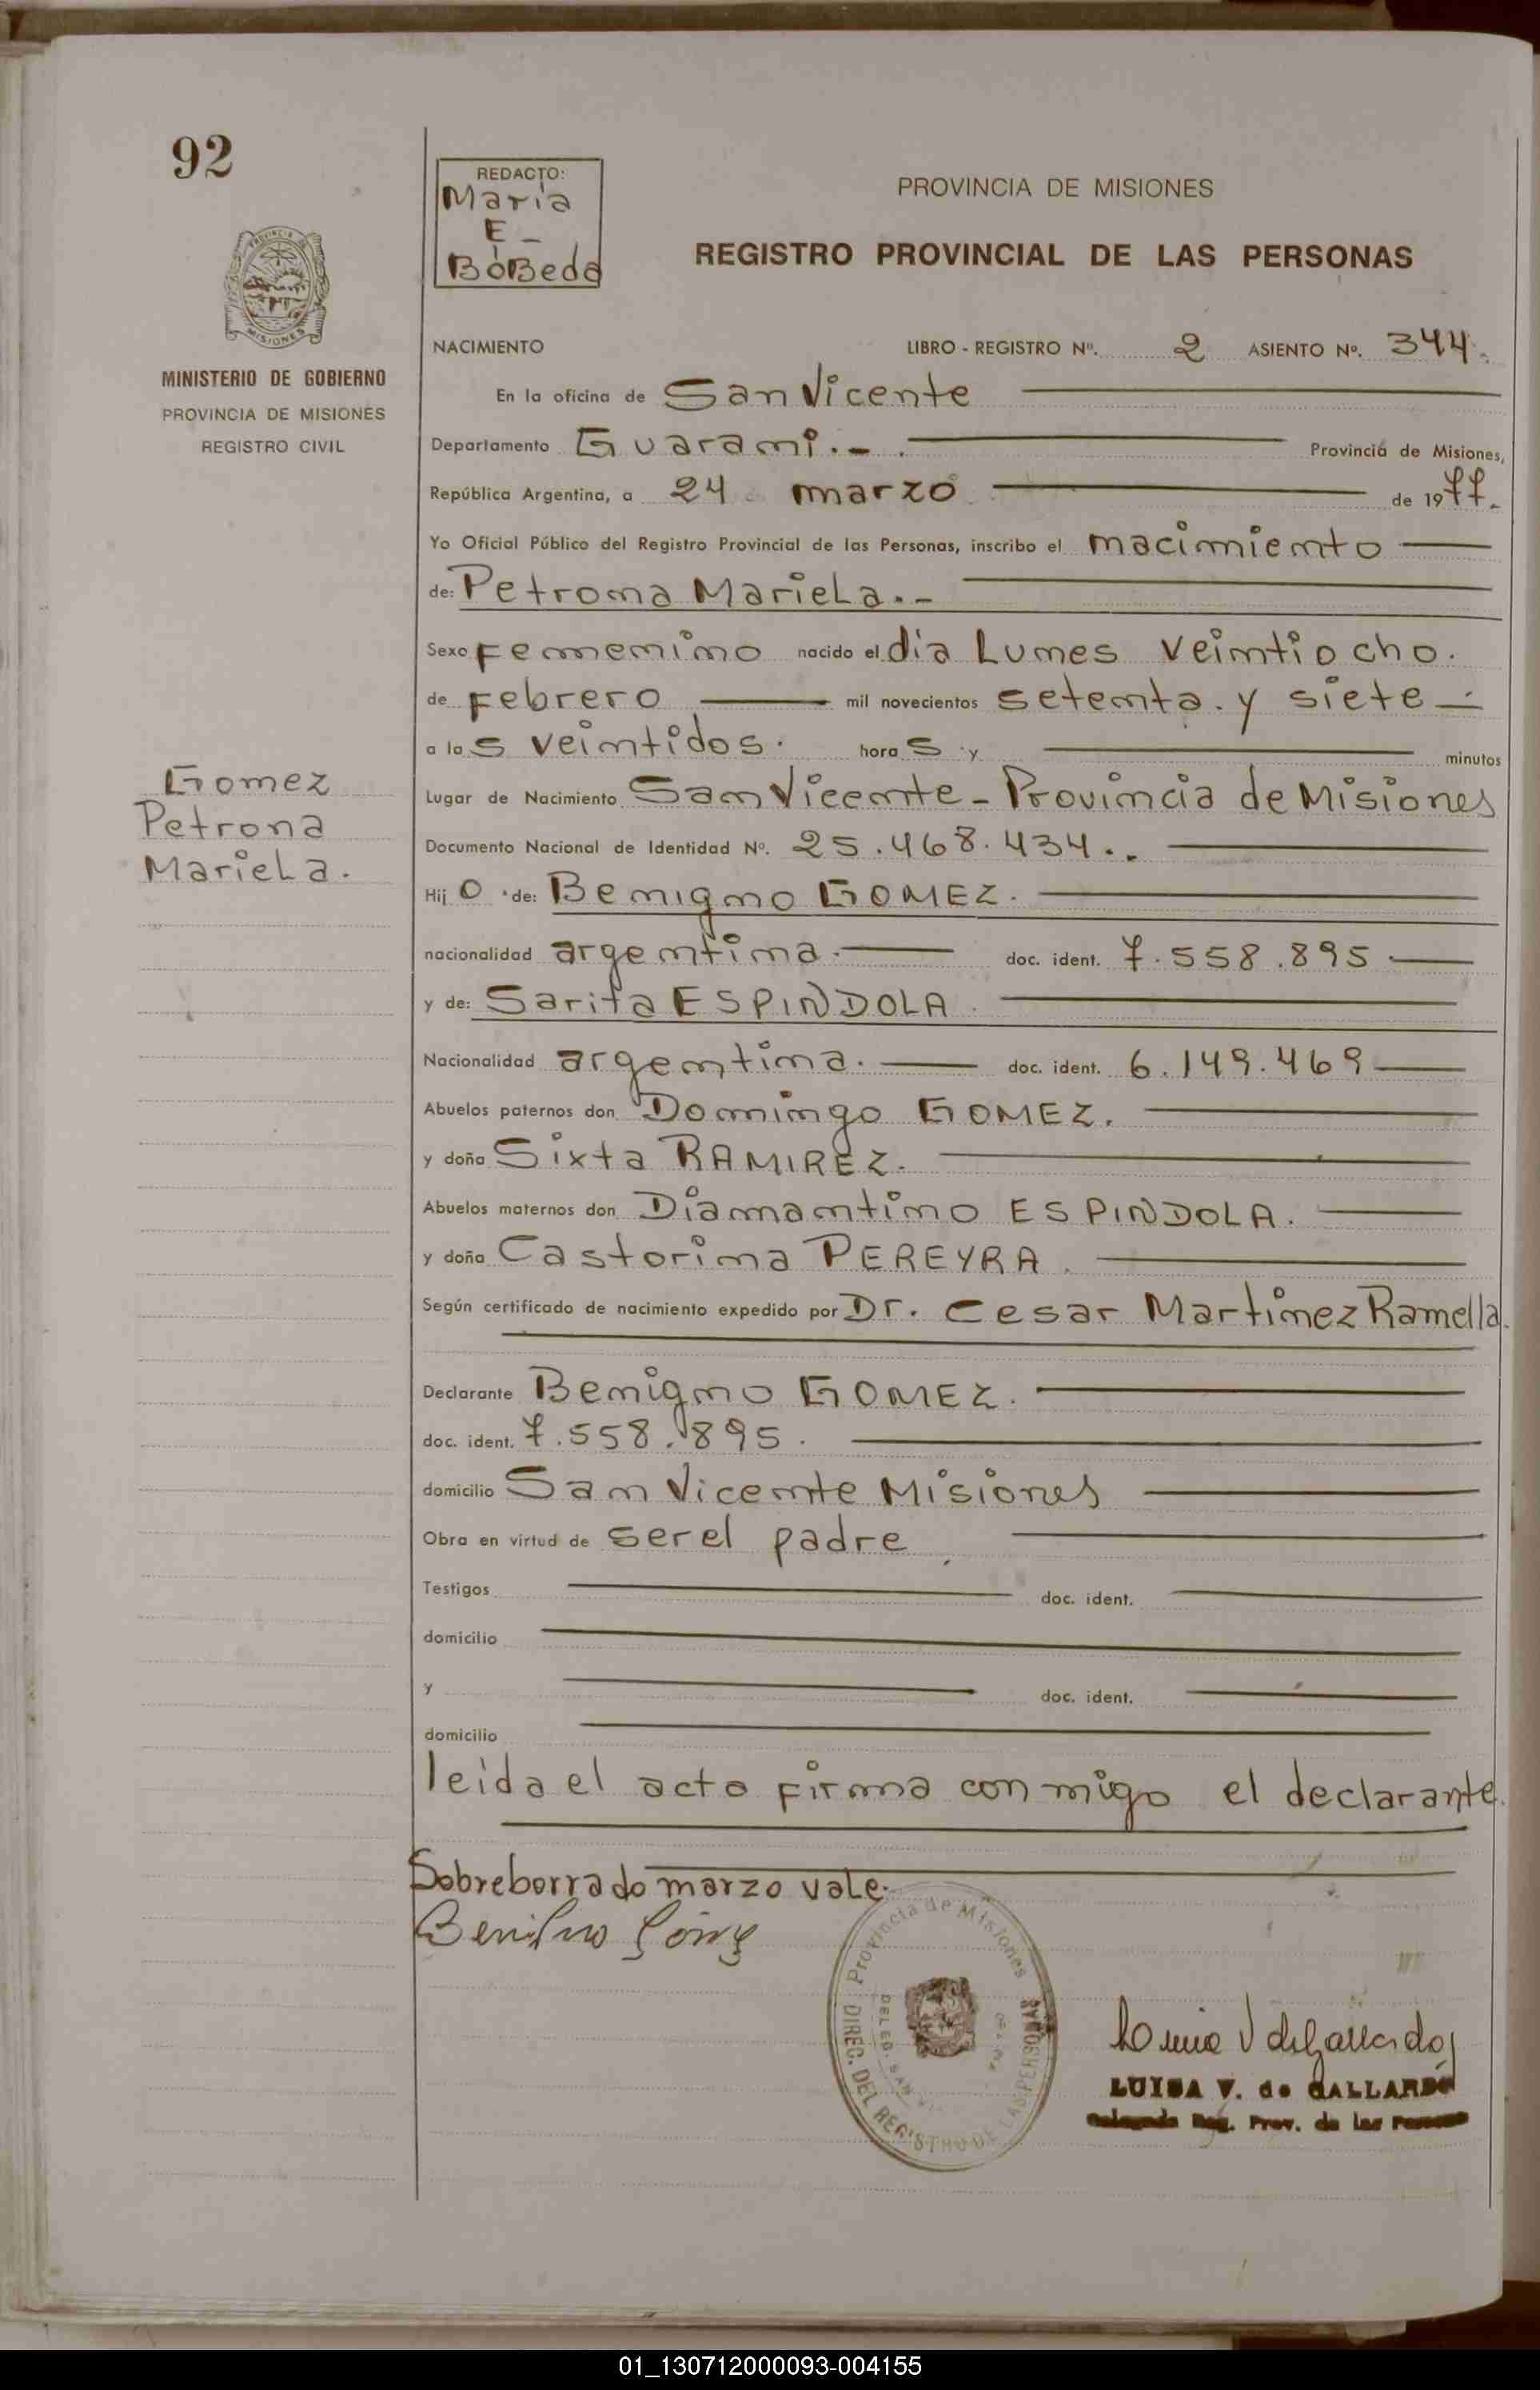 92
REDACTO:
Maria
E -
BóBeda
PROVINCIA DE MISIONES
REGISTRO PROVINCIAL DE LAS PERSONAS
MINISTERIO DE GOBIERNO
PROVINCIA DE MISIONES
REGISTRO CIVIL
Gomez
Petrona
Mariela.
NACIMIENTO LIBRO - REGISTRO Nº. 2 ASIENTO Nº. 344.
En la oficina de San Vicente
Departamento Guarani.-. Provincia de Misiones,
República Argentina, a 24 marzo de 1977.-
Yo Oficial Público del Registro Provincial de las Personas, inscribo el nacimiento
de: Petrona Mariela.-
Sexo Femenino nacido el dia Lunes veintiocho.
de Febrero mil novecientos setenta y siete -
a las veintidos. horas y minutos
Lugar de Nacimiento San Vicente - Provincia de Misiones
Documento Nacional de Identidad Nº. 25.468.434..
Hijo de: Benigno GOMEZ.
nacionalidad argentina. doc. ident. 7.558.895.
y de: Sarita ESPINDOLA.
Nacionalidad argentina. doc. ident. 6.149.469
Abuelos paternos don Domingo GOMEZ.
y doña Sixta RAMIREZ.
Abuelos maternos don Diamantino ESPINDOLA.
y doña Castorina PEREYRA.
Según certificado de nacimiento expedido por Dr. Cesar Martinez Ramella.
Declarante Benigno GOMEZ.
doc. ident. 7.558.895.
domicilio San Vicente Misiones
Obra en virtud de ser el padre
Testigos doc. ident.
domicilio
y doc. ident.
domicilio
leida el acta firma conmigo el declarante.
Sobreborrado marzo vale.
Provincia de Misiones
DIREC. DEL REGISTRO DE LAS PERSONAS
LUISA V. de GALLARDO
Reg. Prov. de las Personas
01_130712000093-004155